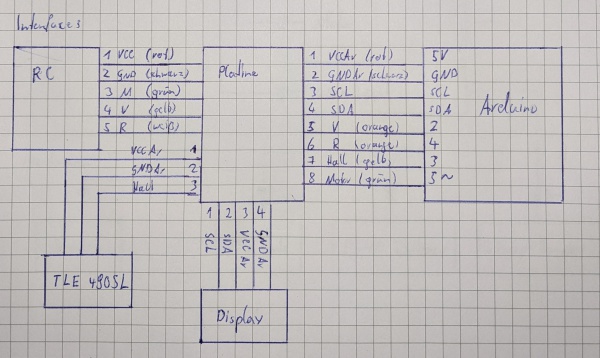 Interfaces
RC
1 VCC (rot)
2 GND (schwarz)
3 M (grün)
4 V (gelb)
5 R (weiß)
VCCAr 1
GNDAr 2
Hall 3
Platine
1 VCCAr (rot)
2 GNDAr (schwarz)
3 SCL
4 SDA
5 V (orange)
6 R (orange)
7 Hall (gelb)
8 Motor (grün)
5V
GND
SCL
SDA
2
4
3
5~
Arduino
1 2 3 4
SCL
SDA
VCCAr
GNDAr
TLE 4905L
Display